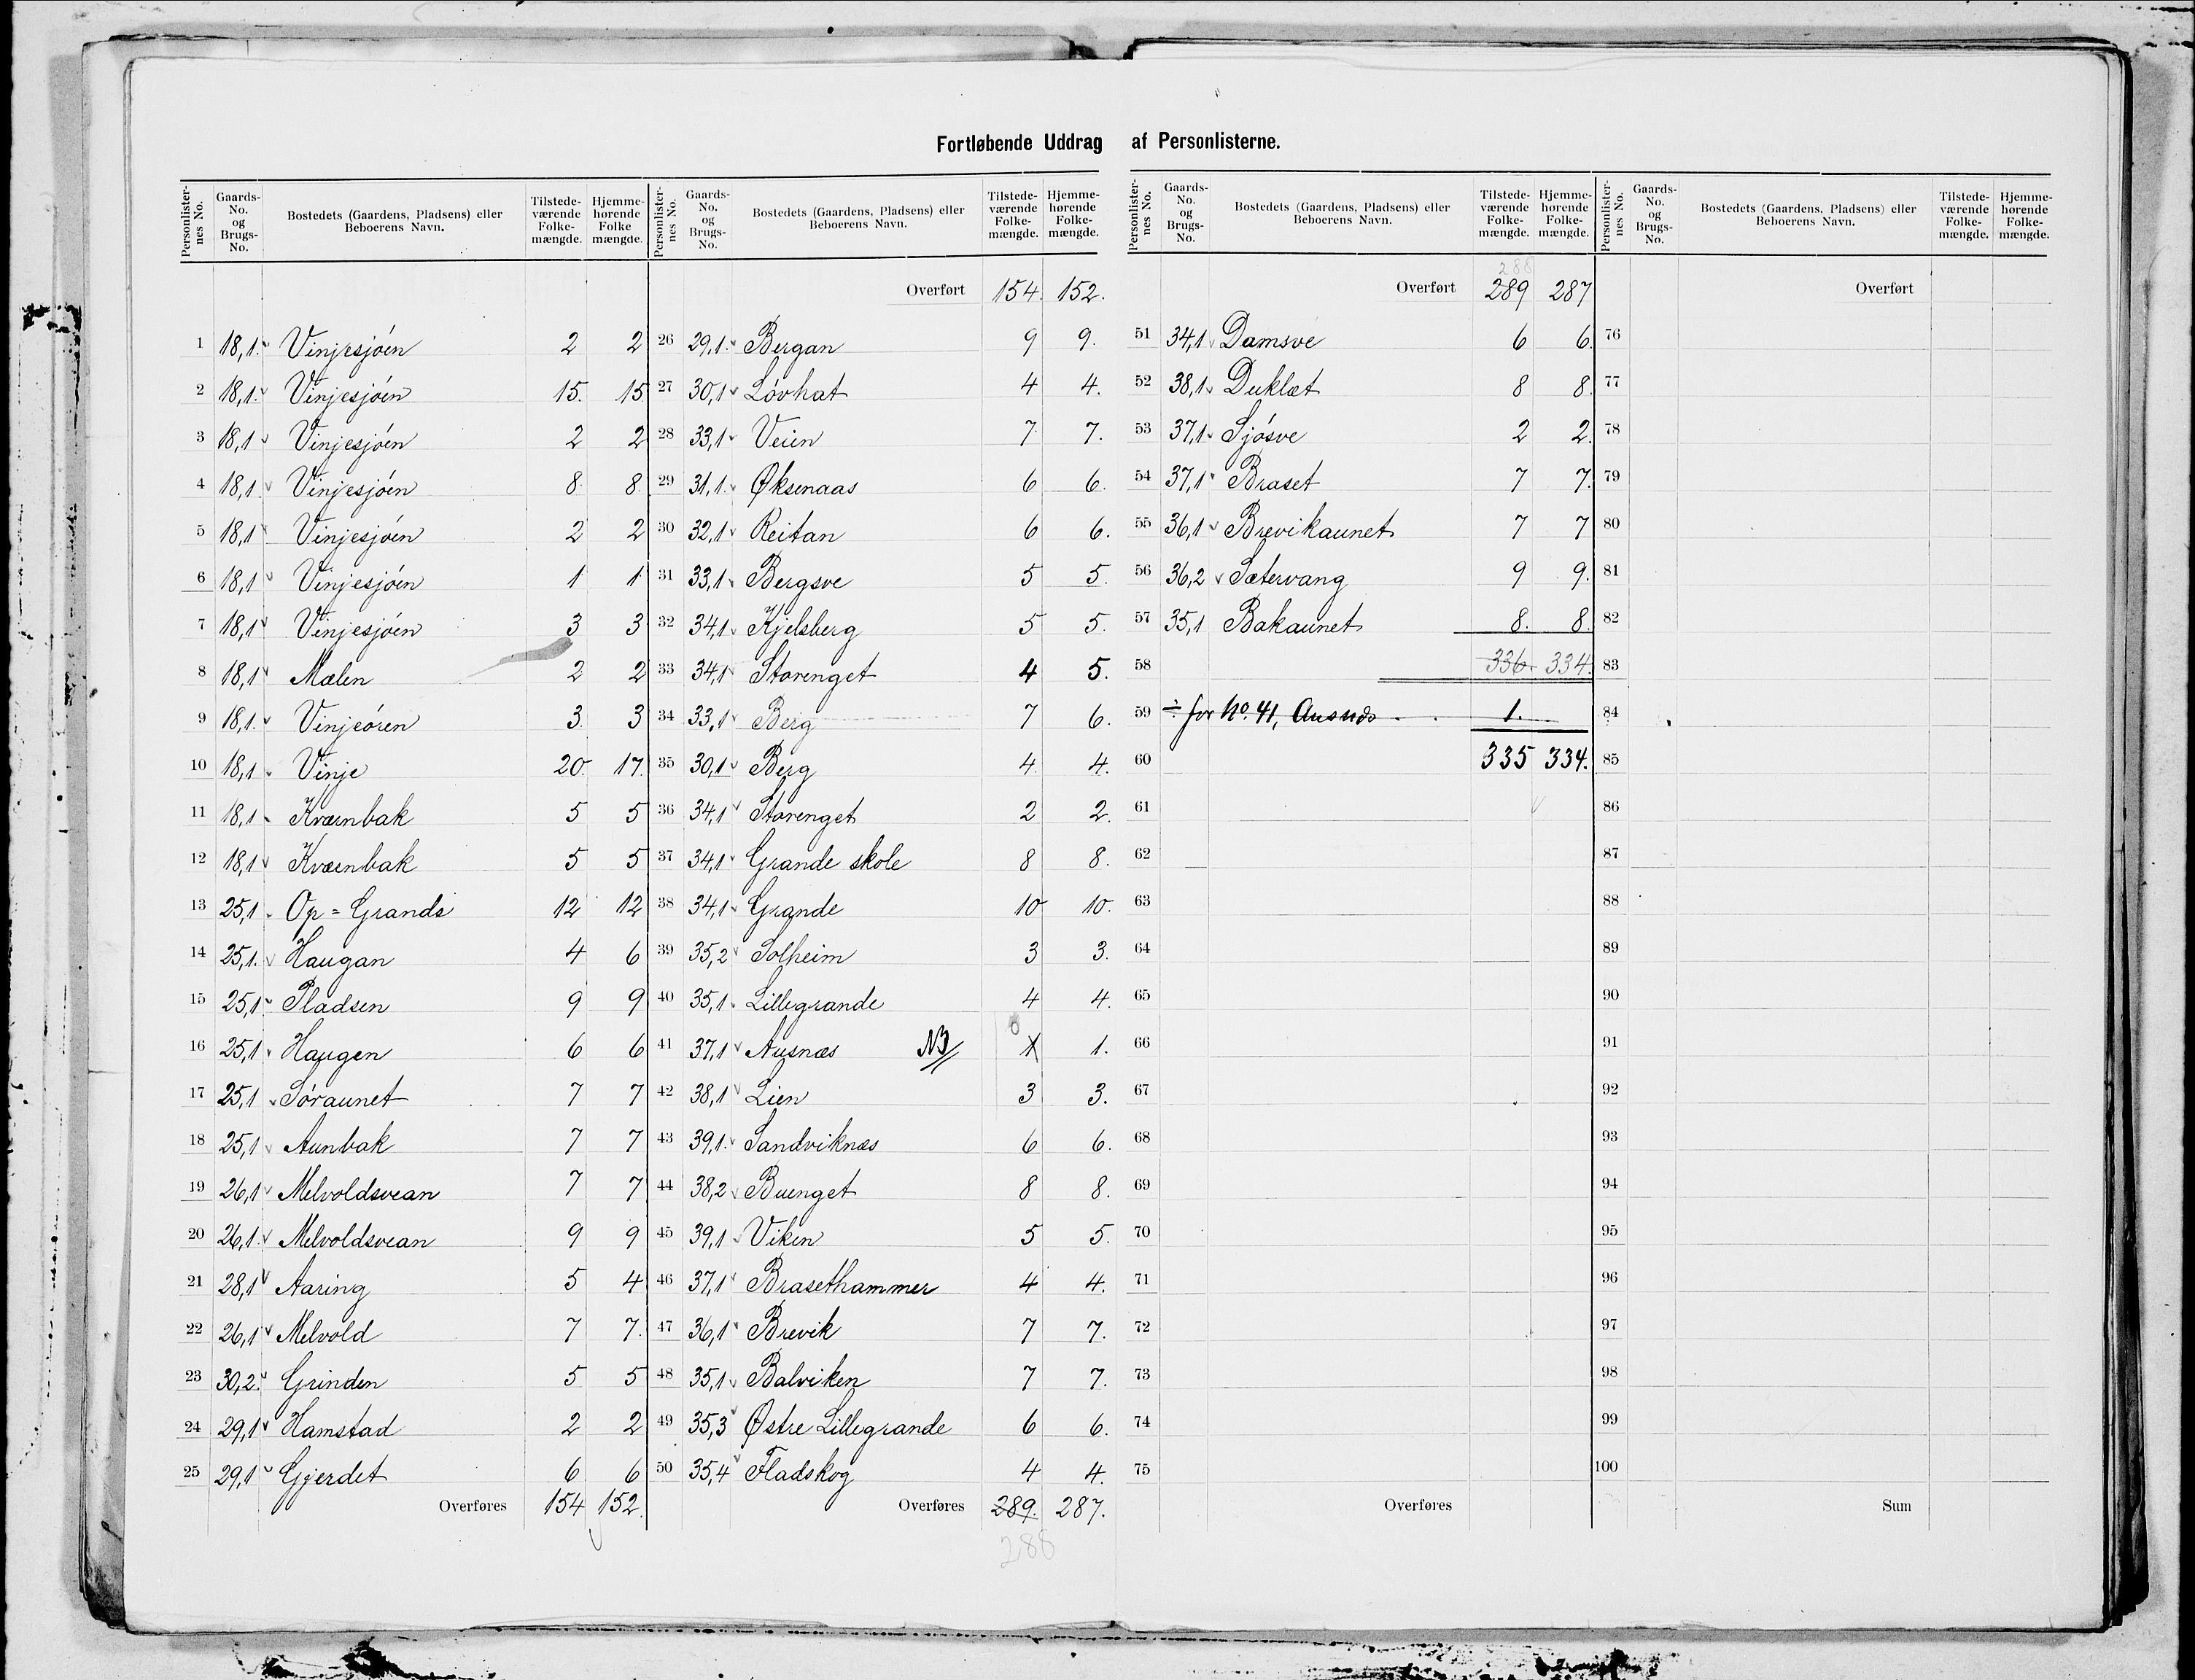 Fortløbende Uddrag af Personlisterne.
Personlister-nes No. Gaards-No. og Brugs-No. Bostedets (Gaardens, Pladsens) eller Beboerens Navn. Tilstede-værende Folke-mængde. Hjemme-hørende Folke mængde.
1 18,1. Vinjesjóen 2 2
2 18,1. Vinjesjóen 15. 15
3 18,1 Vinjesjóen 2 2
4 18,1 Vinjesjóen 8 8
5 18,1 Vinjesjóen 2 2
6 18,1 Vinjesjóen 1 1
7 18,1 Vinjesjóen 3 3
8 18,1 Mælen 2 2
9 18,1. Vinjeóren 3 3
10 18,1 Vinje 20. 17.
11 18,1 Kværnbak 5 5
12 18,1 Kværnbak 5 5
13 25,1 Op=Grande 12 12
14 25,1. Haugan 4 6
15 25,1 Pladsen 9 9
16 25,1 Haugen 6 6
17 25,1 Sóraunet 7 7
18 25,1 Aunbak 7 7
19 26,1 Melvoldsvean 7 7
20 26,1. Melvoldsvean 9 9
21 28,1 Aaring 5 4
22 26,1 Melvold 7 7.
23 30,2. Grinden 5 5
24 29,1 Hamstad 2 2
25 29,1 Gjerdet 6 6
Overføres 154 152.
Personlister-nes No. Gaards-No. og Brugs-No. Bostedets (Gaardens, Pladsens) eller Beboerens Navn. Tilstede-værende Folke-mængde. Hjemme-hørende Folke-mængde.
Overført 154. 152.
26 29,1. Bergan 9 9.
27 30,1 Lóvhat 4 4.
28 33,1 Veien 7 7.
29 31,1. Øksenaas 6 6.
30 32,1 Reitan 6 6.
31 33,1 Bergsve 5 5.
32 34,1 Kjelsberg 5 5.
33 34,1 Storenget 4 5.
34 33,1 Berg 7 6.
35 30,1 Berg 4 4.
36 34,1 Storenget 2 2.
37 34,1 Grande skole 8 8.
38 34,1 Grande 10 10.
39 35,2 Solheim 3 3.
40 35,1. Lillegrande 4 4.
0
41 37,1 Ausnæs NB 1 1.
42 38,1 Lien 3 3.
43 39,1. Sandviknæs 6 6.
44 38,2 Buenget 8 8.
45 39,1 Viken 5 5.
46 37,1 Brasethammer 4 4.
47 36,1 Brevik 7 7.
48 35,1 Balviken 7 7.
49 35,3 Østre Lillegrande 6 6.
50 35,4 Fladskog 4 4.
Overføres 289. 287.
288
Personlister-nes No. Gaards-No. og Brugs-No. Bostedets (Gaardens, Pladsens) eller Beboerens Navn. Tilstede-værende Folke-mængde. Hjemme-hørende Folke-mængde.
288
Overført 289 287
51 34,1 Damsve 6 6.
52 38,1 Duklæt 8 8.
53 37,1 Sjósve 2 2.
54 37,1 Braset 7 7.
55 36,1 Brevikaunet 7 7
56 36,2 Sætervang 9 9.
57 35,1 Bakaunet 8. 8.
58 336. 334.
59 ÷ for No. 41, Ausnæs 1.
60 335 334.
61
62
63
64
65
66
67
68
69
70
71
72
73
74
75
Overføres
Personlister-nes No. Gaards-No. og Brugs-No. Bostedets (Gaardens, Pladsens) eller Beboerens Navn. Tilstede-værende Folke-mængde. Hjemme-hørende Folke-mængde.
Overført
76
77
78
79
80
81
82
83
84
85
86
87
88
89
90
91
92
93
94
95
96
97
98
99
100
Sum